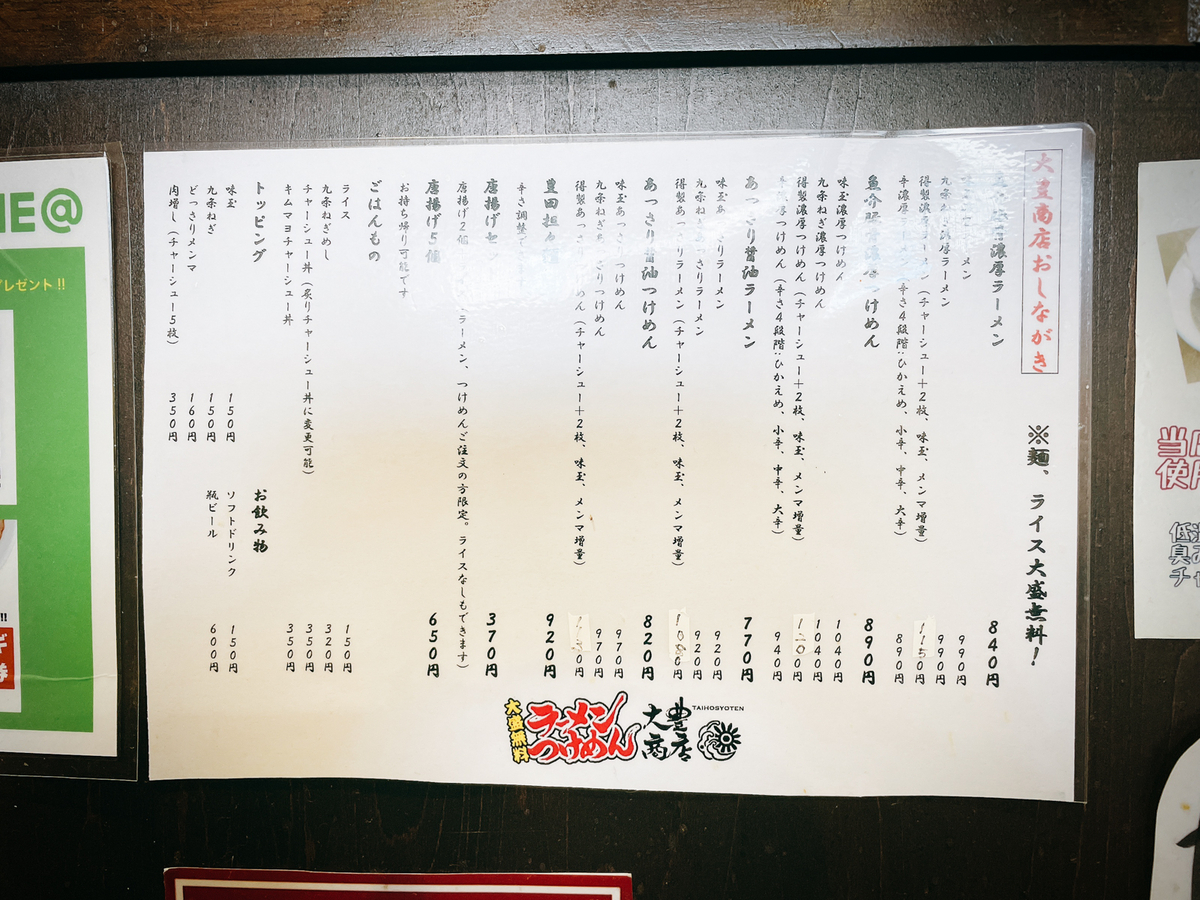 大豊商店おしながき
※麺、ライス大盛無料！
濃厚ラーメン 840円
メン 990円
九条ねぎ濃厚ラーメン 990円
得製濃厚ラーメン（チャーシュー＋2枚、味玉、メンマ増量） 1150円
辛濃厚 メン（辛さ4段階：ひかえめ、小辛、中辛、大辛） 890円
魚介豚骨濃厚つけめん 890円
味玉濃厚つけめん 1040円
九条ねぎ濃厚つけめん 1040円
得製濃厚つけめん（チャーシュー＋2枚、味玉、メンマ増量） 1200円
辛濃厚つけめん（辛さ4段階：ひかえめ、小辛、中辛、大辛） 940円
あっさり醤油ラーメン 770円
味玉あっさりラーメン 920円
九条ねぎあっさりラーメン 920円
得製あっさりラーメン（チャーシュー＋2枚、味玉、メンマ増量） 1080円
あっさり醤油つけめん 820円
味玉あっさりつけめん 970円
九条ねぎあっさりつけめん 970円
得製あっさりつけめん（チャーシュー＋2枚、味玉、メンマ増量） 1130円
豊田担々麺 920円
辛さ調整
唐揚げセット 370円
唐揚げ2個 ラーメン、つけめんご注文の方限定。ライスなしもできます）
唐揚げ5個 650円
お持ち帰り可能です
ごはんもの
ライス 150円
九条ねぎめし 320円
チャーシュー丼（炙りチャーシュー丼に変更可能） 350円
キムマヨチャーシュー丼 350円
トッピング
味玉 150円
九条ねぎ 150円
どっさりメンマ 160円
肉増し（チャーシュー5枚） 350円
お飲み物
ソフトドリンク 150円
瓶ビール 600円
大盛無料
ラーメン
つけめん
大豊
商店
TAIHOSYOTEN
NE@
レゼント!!
当店
使用
低温
具み
チャ